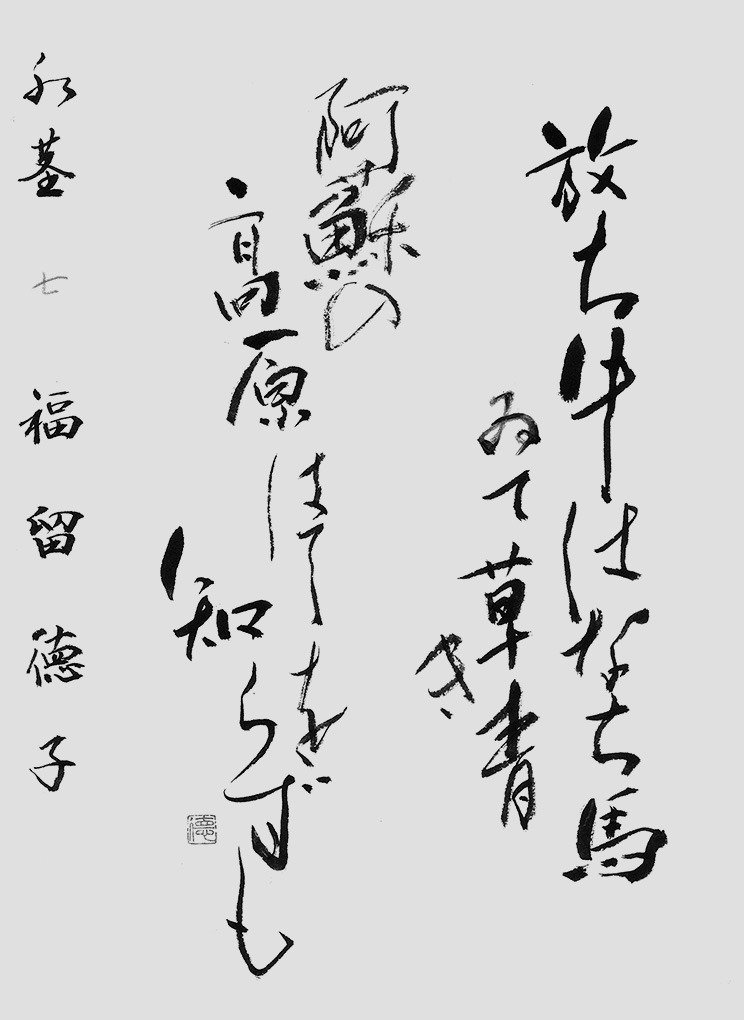 放ち牛はなち馬
ゐて草青
き
阿蘇の
高原
はてを
知らずも
水莖 七 福留徳子
徳